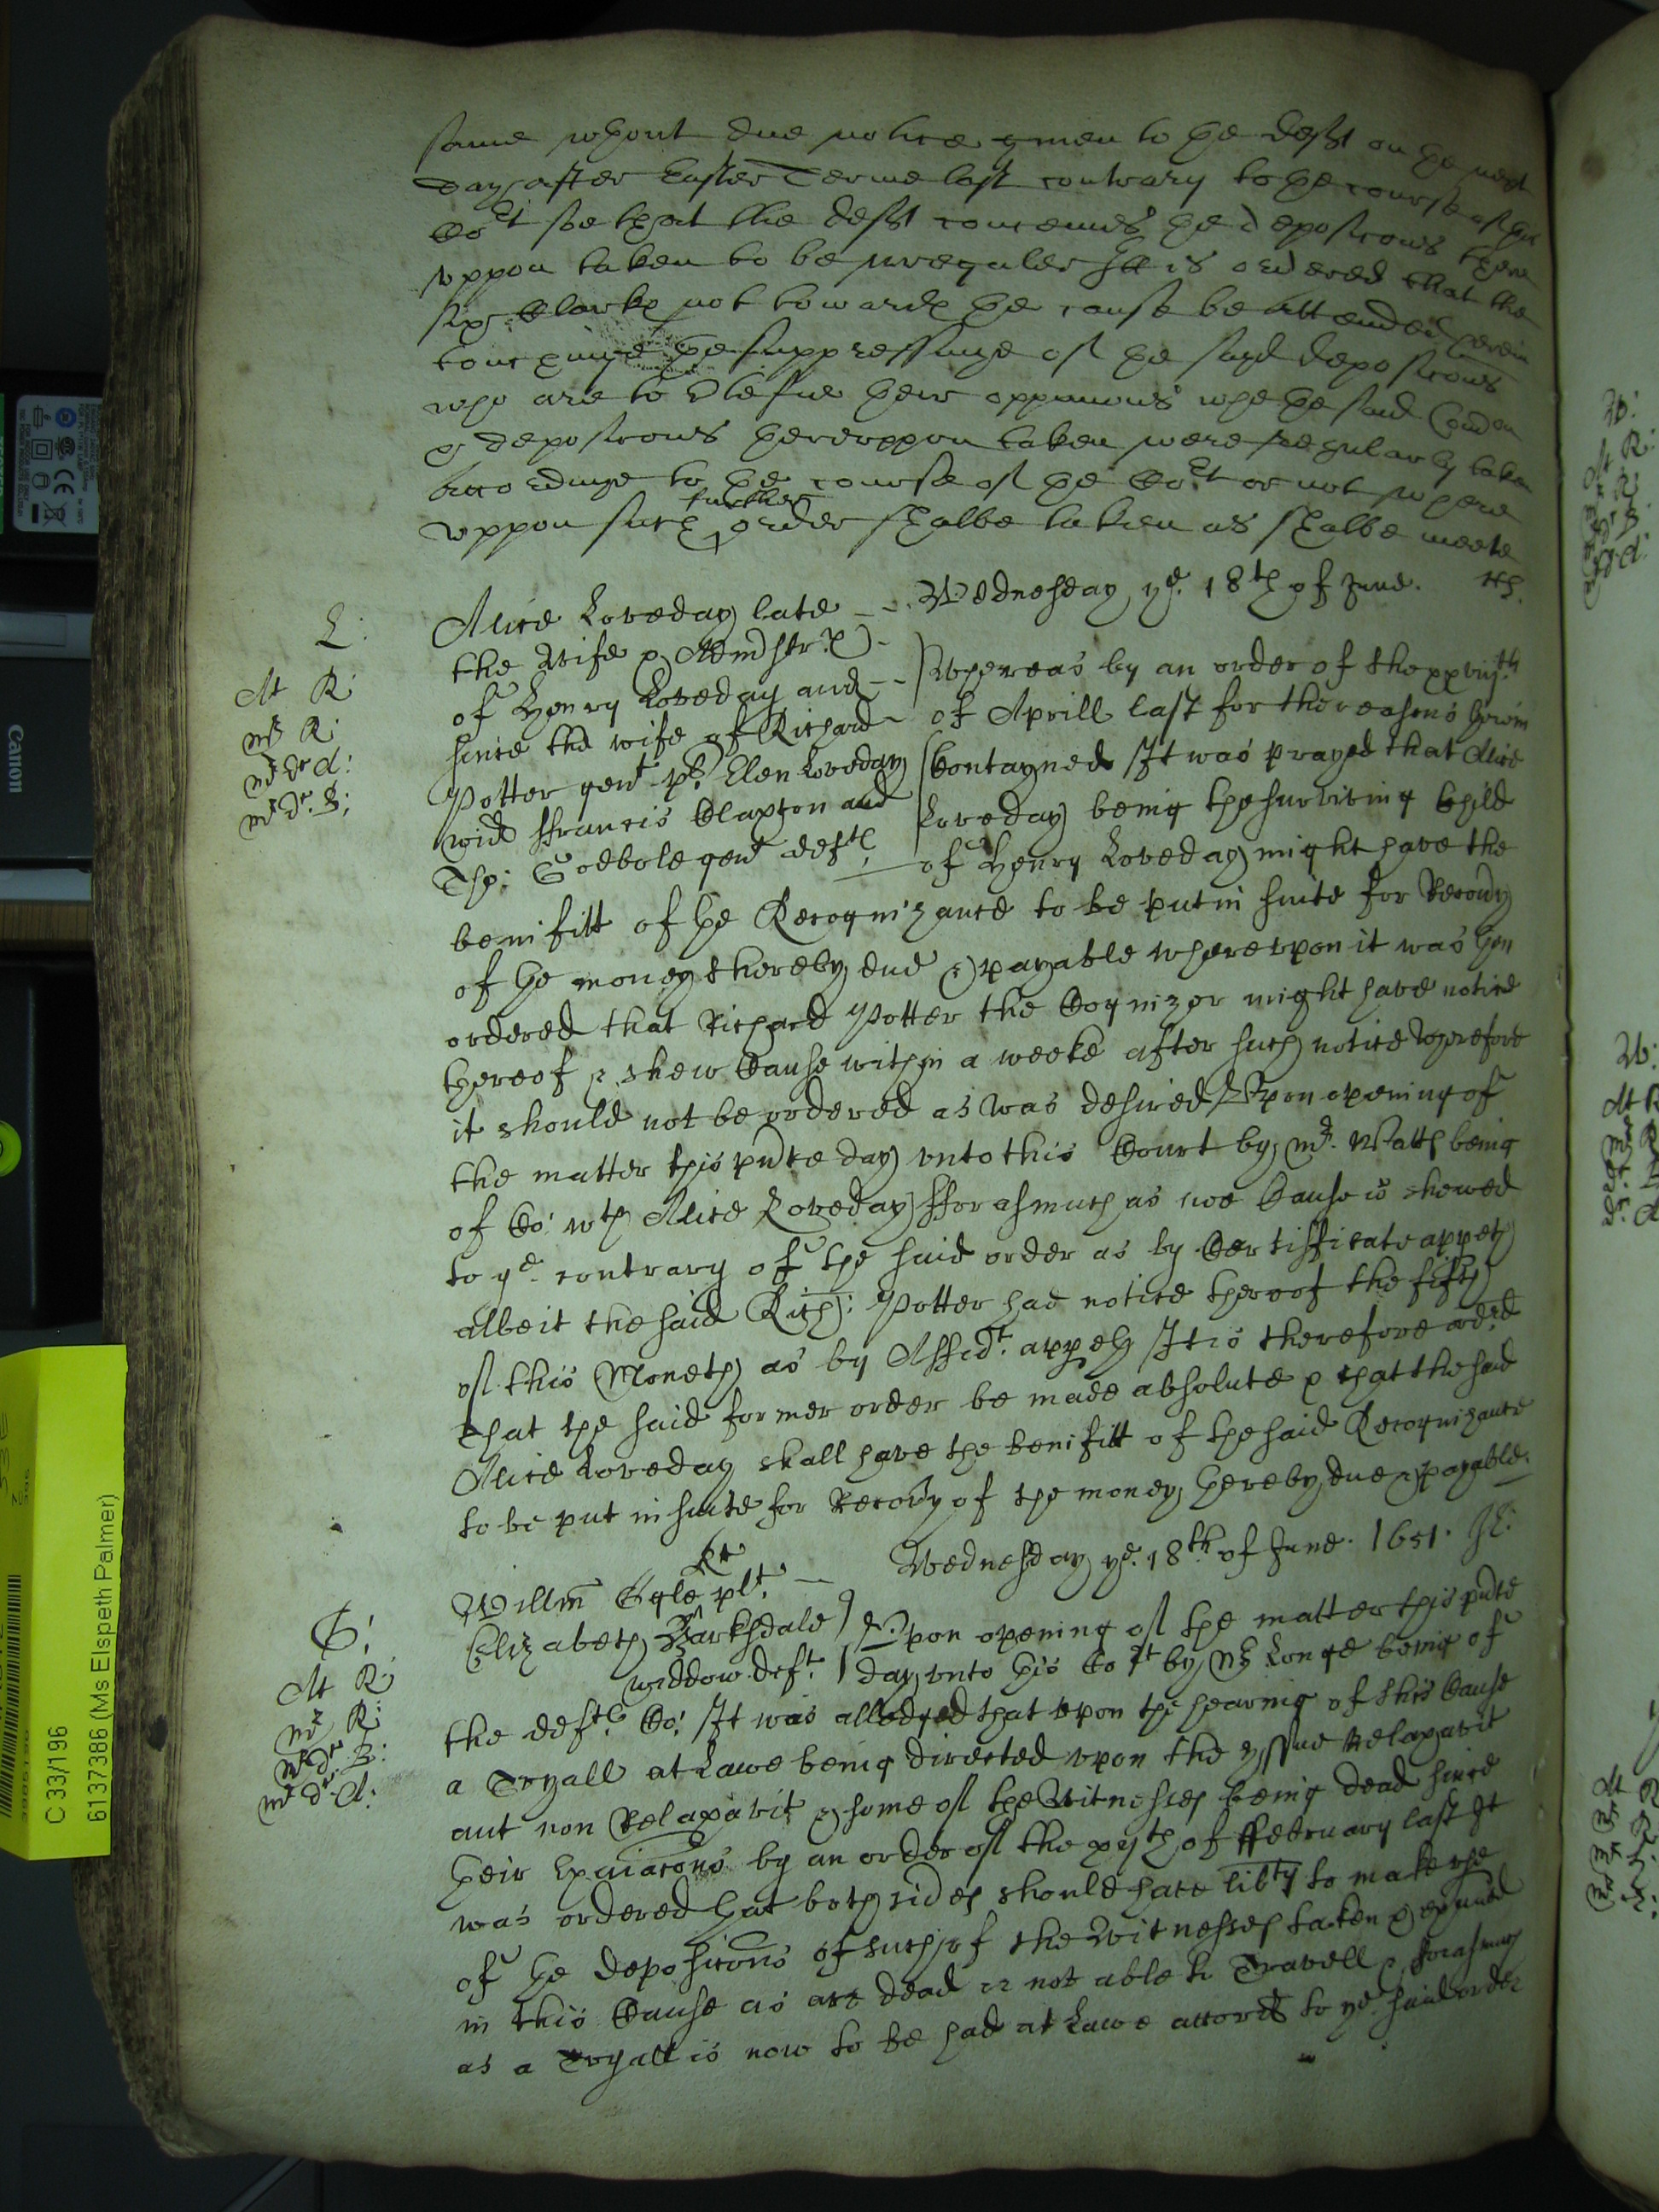 same wthout due notice given to the deft on the next
day after Easter Terme last contrary to the course of this
Cort soe that the deft conceives the deposicons there
vppon taken to be irreguler It is ordered that the
six Clarkes not towards the cause be attended herein
touchinge the suppressinge of the sayd deposicons
who are to Certefie their oppinions whe the said Comon
& deposicons therevppon taken were regularly taken
accordinge to the course of the Cort or not where
further
vppon such order shalbe taken as shalbe meete
Wednesday ye. 18th of June.
L:
Alice Loveday late
the Wife & Admstrx
of Henry Loveday and
since the wife of Richard
Potter gent plt Elen Loveday
wid ffrancis Claxton and
Tho: Godbole gent defts
At R:
Mr R:
Mr Dr A:
Mr Dr. B:
Whereas by an order of the xxviijth
of Aprill last for the reasons therin
Contayned It was prayed that Alice
Loveday being the surviving Child
of Henry Loveday might have the
benifitt of the Recognizance to be put in suite for Recovy
of the money thereby due & payable wherevpon it was then
ordered that Richard Potter the Cognizor might have notice
thereof & shew Cause within a weeke after such notice wherefore
it should not be ordered as was desired Vpon opening of
the matter this pnte day vnto this Court by Mr. Watts being
of Co: wth Alice Loveday fforasmuch as noe Cause is shewed
to ye. contrary of the said order as by Certifficate appeth
albeit the said Rich: Potter had notice thereof the fifth
of this Moneth as by Affidt. appeth It is therefore ordrd
That the said former order be made absolute & that the said
Alice Loveday shall have the benifitt of the said Recognizance
to be put in suite for Recovy of the money thereby due & payable.
Wednesday ye. 18th of June. 1651.
Kt
Willm plt.
Elizabeth Barksdale
widdow deft.
At R:
Mr R:
Mr Dr B:
Mr D. A:
Vpon opening of the matter this pnte
day vnto this Cort by Mr Longe being of
the defts Co: It was alledged that vpon the hearing of this Cause
a Tryall at Lawe being directed vpon the yssue Relaxavit
aut non Relaxavit & some of the Witnesses being dead since
their Exaiacons by an order of the xijth of ffebruary last It
was ordered that both sides should have libty to make vse
of the deposicons of such of the Witnesses taken & exmined
in this Cause as are dead or not able to Travell & forasmuch
as a Tryall is now to be had at Lawe accords to ye. said order
Canon
C 33/196
6137386 (Ms Elspeth Palmer)